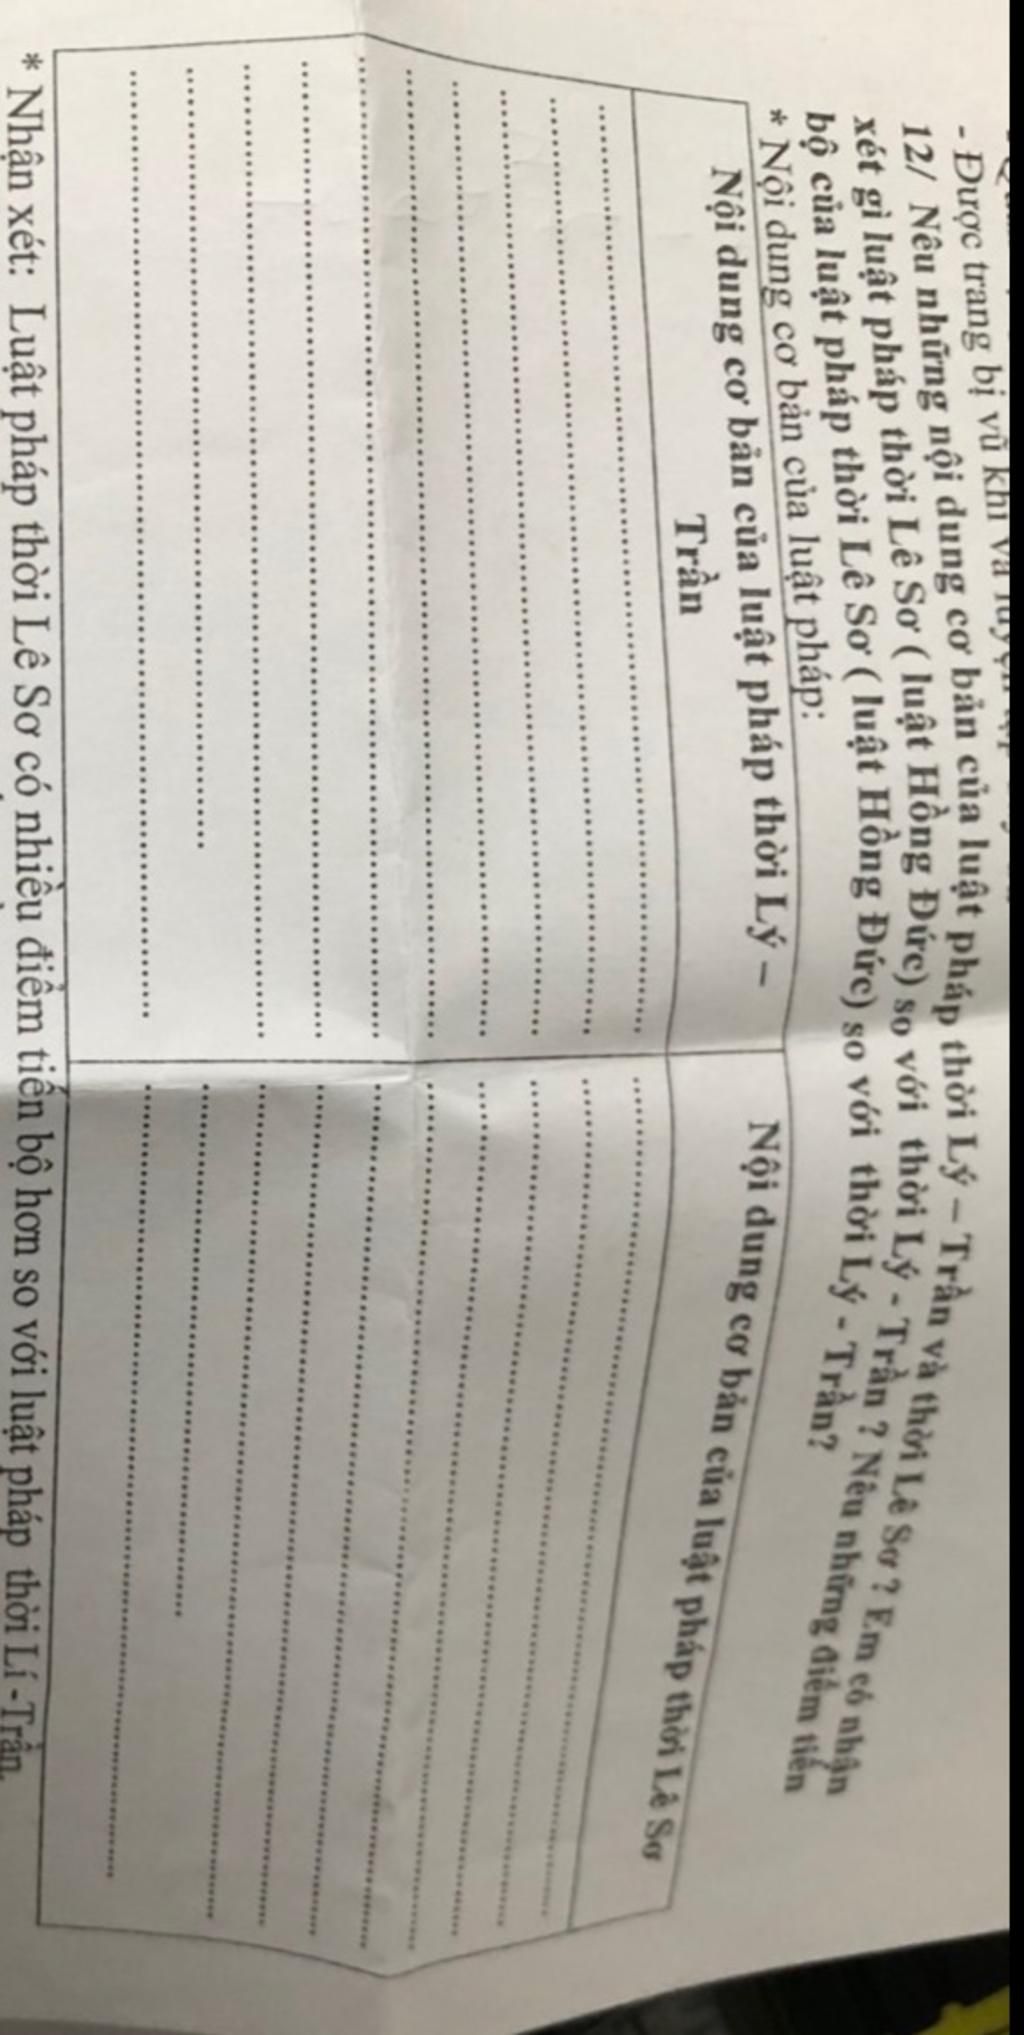 - Được trang bị vũ khí và luyện
12/ Nêu những nội dung cơ bản của luật pháp thời Lý – Trần và thời Lê Sơ ? Em có nhận
xét gì luật pháp thời Lê Sơ ( luật Hồng Đức) so với thời Lý - Trần ? Nêu những điểm tiến
bộ của luật pháp thời Lê Sơ ( luật Hồng Đức) so với thời Lý - Trần?
* Nội dung cơ bản của luật pháp:
Nội dung cơ bản của luật pháp thời Lý –
Trần
Nội dung cơ bản của luật pháp thời Lê Sơ
* Nhận xét: Luật pháp thời Lê Sơ có nhiều điểm tiến bộ hơn so với luật pháp thời Lí -Trần.